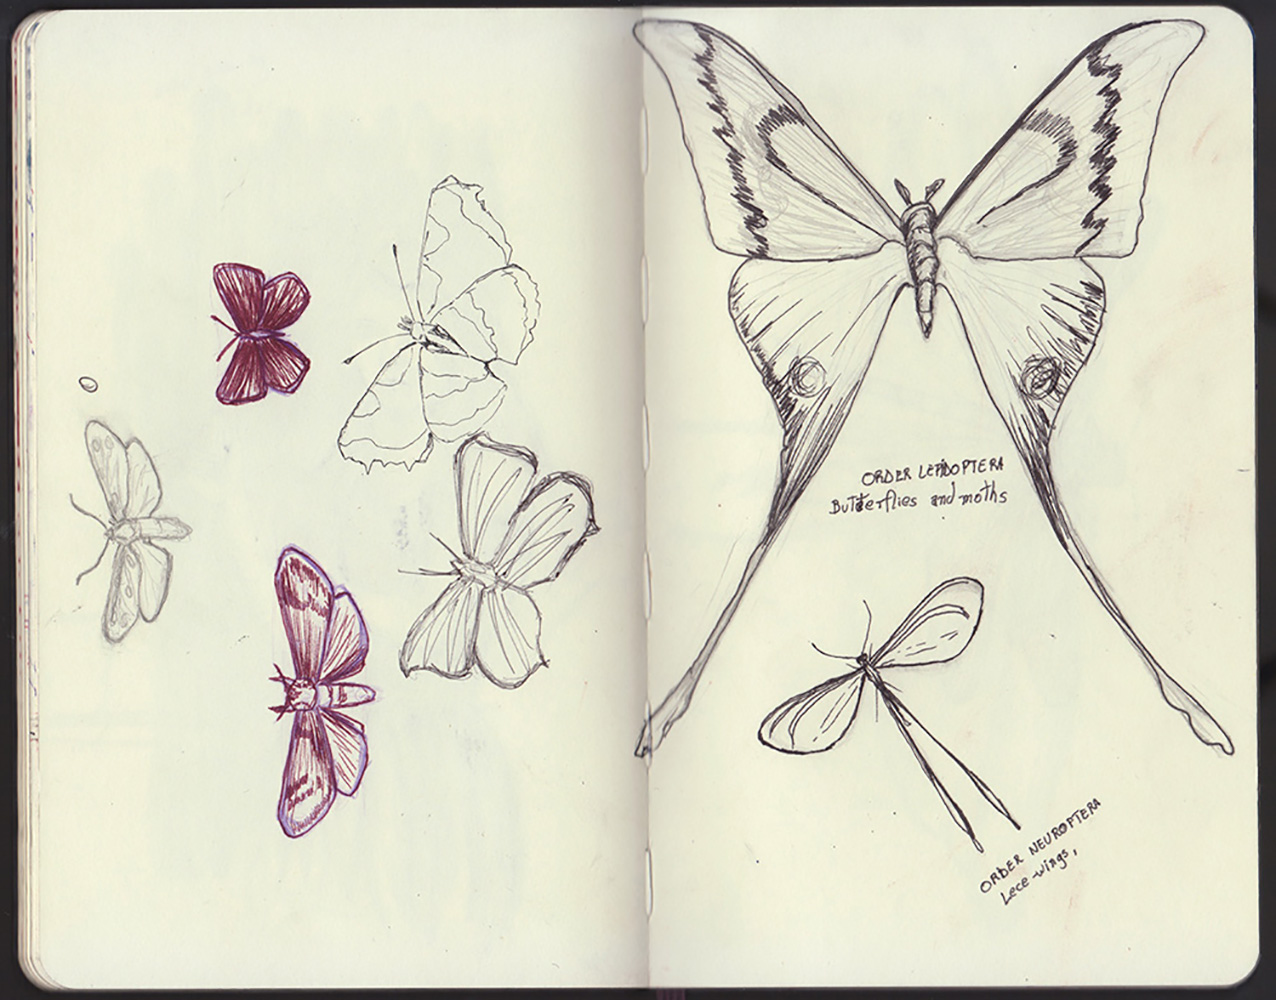 ORDER LEPIDOPTERA
Butterflies and moths
ORDER NEUROPTERA
Lece-wings,